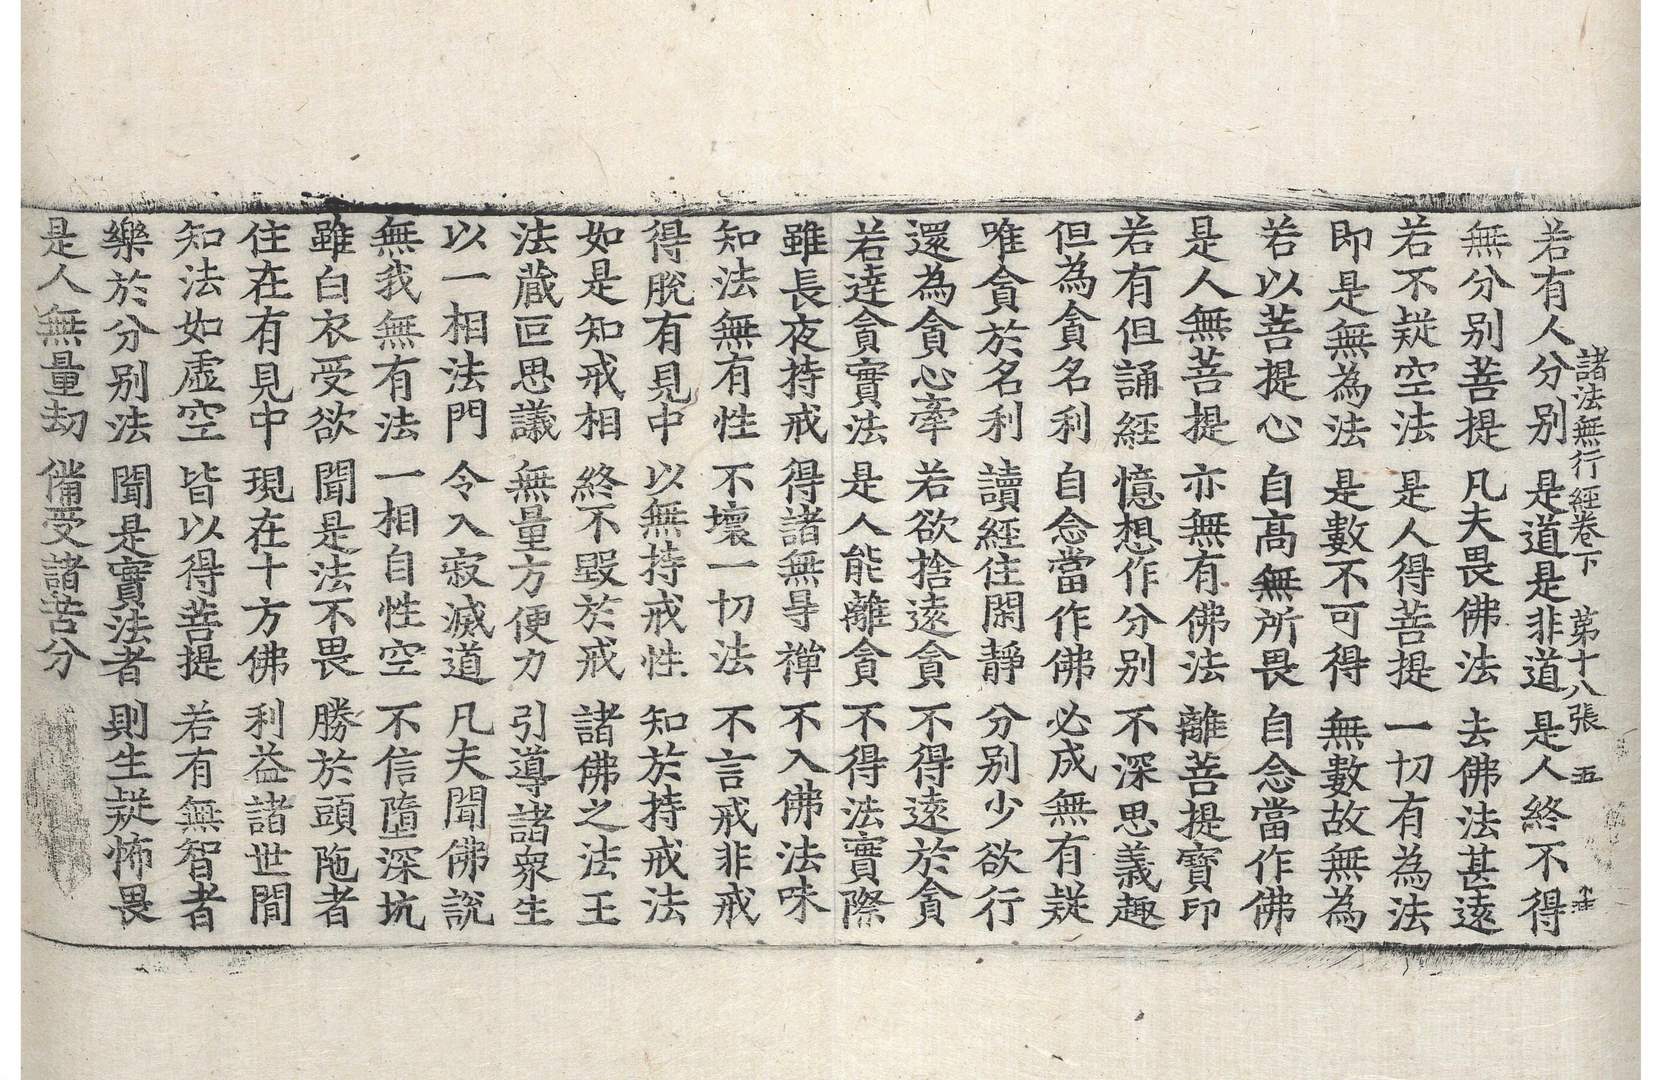 諸法無行經卷下　第十八張　五
若有人分别　是道是非道　是人終不得
無分别菩提　凡夫畏佛法　去佛法甚遠
若不疑空法　是人得菩提　一切有為法
即是無為法　是數不可得　無數故無為
若以菩提心　自高無所畏　自念當作佛
是人無菩提　亦無有佛法　離菩提寶印
若有但誦經　憶想作分别　不深思義趣
但為貪名利　自念當作佛　必成無有疑
唯貪於名利　讀經住閑靜　分别少欲行
還為貪心牽　若欲捨遠貪　不得遠於貪
若達貪實法　是人能離貪　不得法實際
雖長夜持戒　得諸無㝵禪　不入佛法味
知法無有性　不壞一切法　不言戒非戒
得脫有見中　以無持戒性　知於持戒法
如是知戒相　終不毀於戒　諸佛之法王
法藏叵思議　無量方便力　引導諸衆生
以一相法門　令入寂滅道　凡夫聞佛說
無我無有法　一相自性空　不信墮深坑
雖白衣受欲　聞是法不畏　勝於頭陁者
住在有見中　現在十方佛　利益諸世間
知法如虛空　皆以得菩提　若有無智者
樂於分别法　聞是實法者　則生疑怖畏
是人無量劫　備受諸苦分